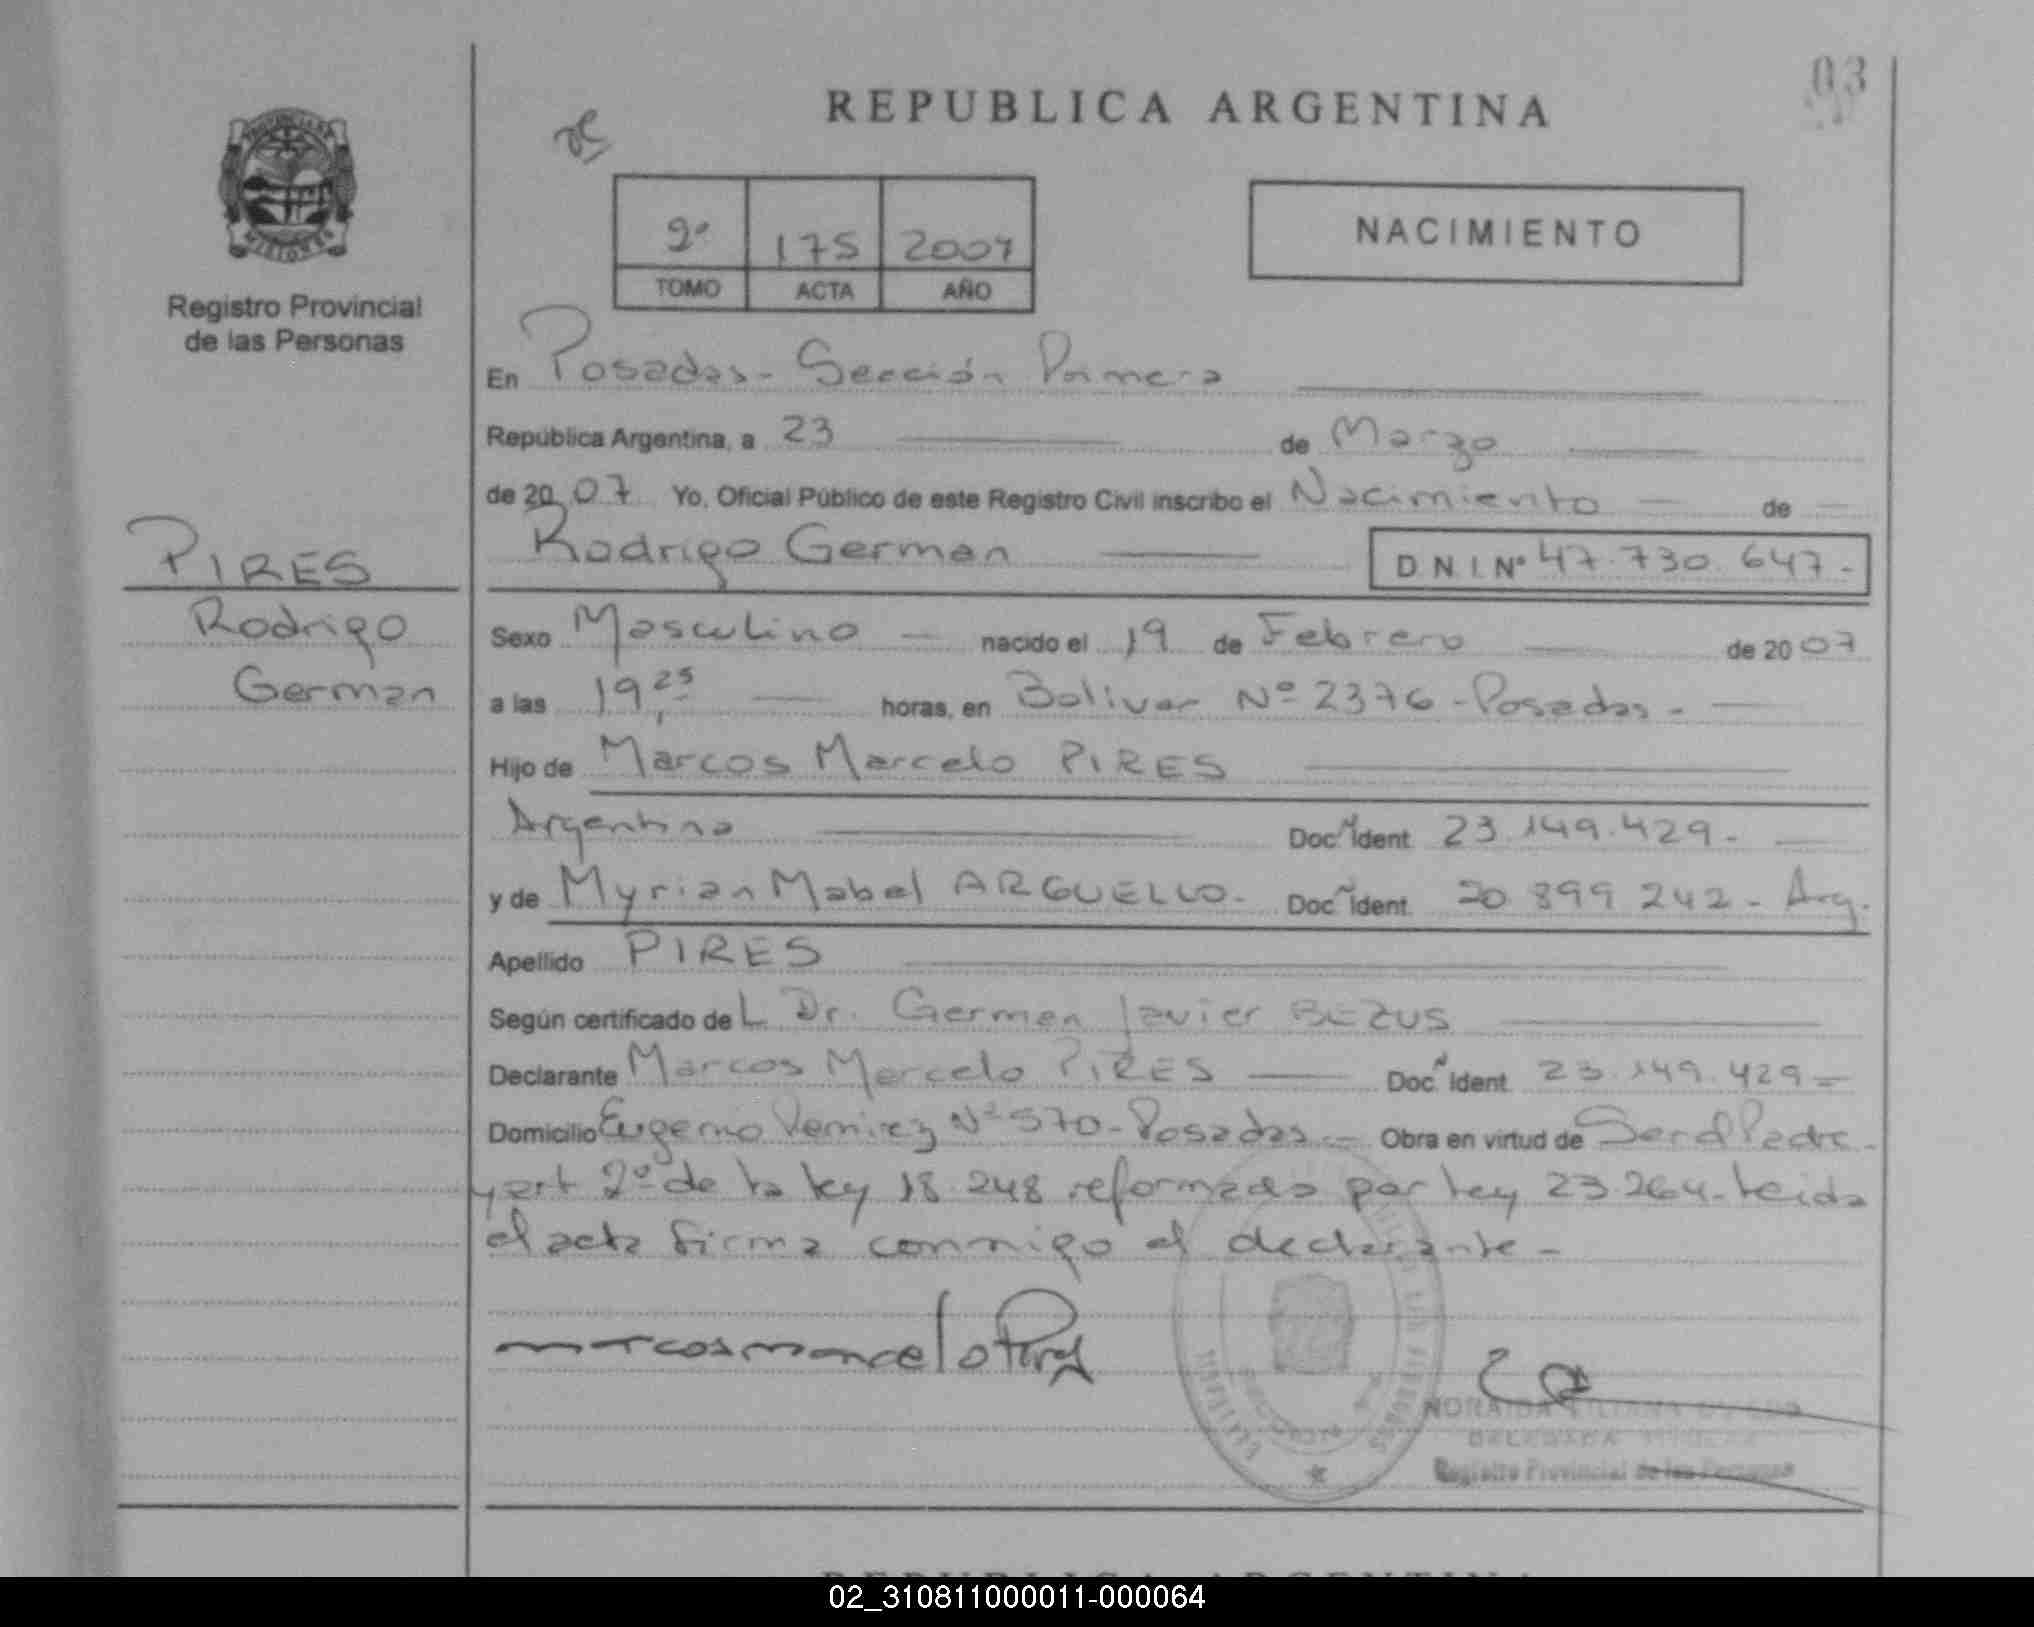 03
REPUBLICA ARGENTINA
PROVINCIA DE
MISIONES
Registro Provincial
de las Personas
2º 175 2007
TOMO ACTA AÑO
NACIMIENTO
En Posadas - Sección Primera
República Argentina, a 23 de Marzo
de 20 07 Yo, Oficial Público de este Registro Civil inscribo el Nacimiento de
Rodrigo German D.N.I. Nº 47.730.647.-
PIRES
Rodrigo
German
Sexo Masculino nacido el 19 de Febrero de 20 07
a las 19,25 horas, en Bolivar Nº 2376 - Posadas -
Hijo de Marcos Marcelo PIRES
Argentino Doc. N Ident. 23.149.429.-
y de Myrian Mabel ARGUELLO - Doc. N Ident. 20.899.242 - Arg.
Apellido PIRES
Según certificado de L Dr. German Javier BEZUS
Declarante Marcos Marcelo PIRES Doc. N Ident. 23.149.429 -
Domicilio Eugenio Ramirez Nº 570 - Posadas - Obra en virtud de Ser el Padre -
y art 2º de la ley 18.248 reformada por ley 23.264 - Leida
el acta firma conmigo el declarante -
marcos marcelo Pires
NORAIDA LILIANA
DELEGADA TITULAR
Registro Provincial de las Personas
REPUBLICA ARGENTINA
02_310811000011-000064